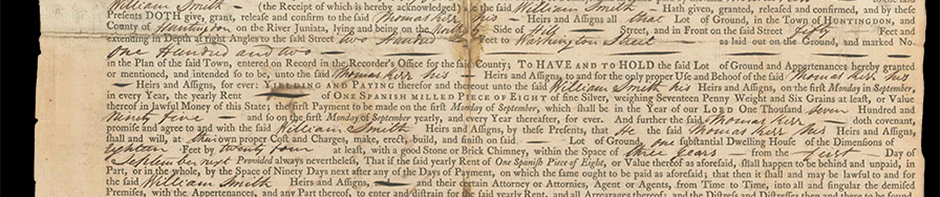 William Smith — (the Receipt of which is hereby acknowledged) the said William Smith — Hath given, granted, released and confirmed, and by these
Presents DOTH give, grant, release and confirm to the said Thomas Kerr his — Heirs and Assigns all that Lot of Ground, in the Town of HUNTINGDON, and
County of Huntingdon on the River Juniata, lying and being on the Side of Hill — Street, and in Front on the said Street fifty Feet and
extending in Depth at right Angles to the said Street two Hundred Feet to Washington Street — as laid out on the Ground, and marked No.
One Hundred and two —
in the Plan of the said Town, entered on Record in the Recorder's Office for the said County; TO HAVE AND TO HOLD the said Lot of Ground and Appertenances hereby granted
or mentioned, and intended so to be, unto the said Thomas Kerr his — Heirs and Assigns, to and for the only proper Use and Behoof of the said Thomas Kerr his
— Heirs and Assigns, for ever: YIELDING AND PAYING therefor and thereout unto the said William Smith his Heirs and Assigns, on the first Monday in September,
in every Year, the yearly Rent of ONE SPANISH MILLED PIECE OF EIGHT of fine Silver, weighing Seventeen Penny Weight and Six Grains at least, or Value
thereof in lawful Money of this State; the first Payment to be made on the first Monday of September, which shall be in the Year of our LORD One Thousand Seven Hundred and
Ninety five — and so on the first Monday of September yearly, and every Year thereafter, for ever. And further the said Thomas Kerr — doth covenant,
promise and agree to and with the said William Smith Heirs and Assigns, by these Presents, that He the said Thomas Kerr his Heirs and Assigns,
shall and will, at own proper Cost and Charges, make, erect, build, and finish on said — Lot of Ground, one substantial Dwelling House of the Dimensions of
Feet by twenty four at least, with a good Stone or Brick Chimney, within the Space of three Years — from the first — Day of
September next Provided always nevertheless, That if the said yearly Rent of One Spanish Piece of Eight, or Value thereof as aforesaid, shall happen to be behind and unpaid, in
Part, or in the whole, by the Space of Ninety Days next after any of the Days of Payment, on which the same ought to be paid as aforesaid; that then it shall and may be lawful to and for
the said William Smith Heirs and Assigns, — and their certain Attorney or Attornies, Agent or Agents, from Time to Time, into all and singular the demised
Premises, with the Appertenances, and any Part thereof, to enter and distrain for the said yearly Rent, and all Arrearages thereof; and the Distress and Distresses then and there to be found